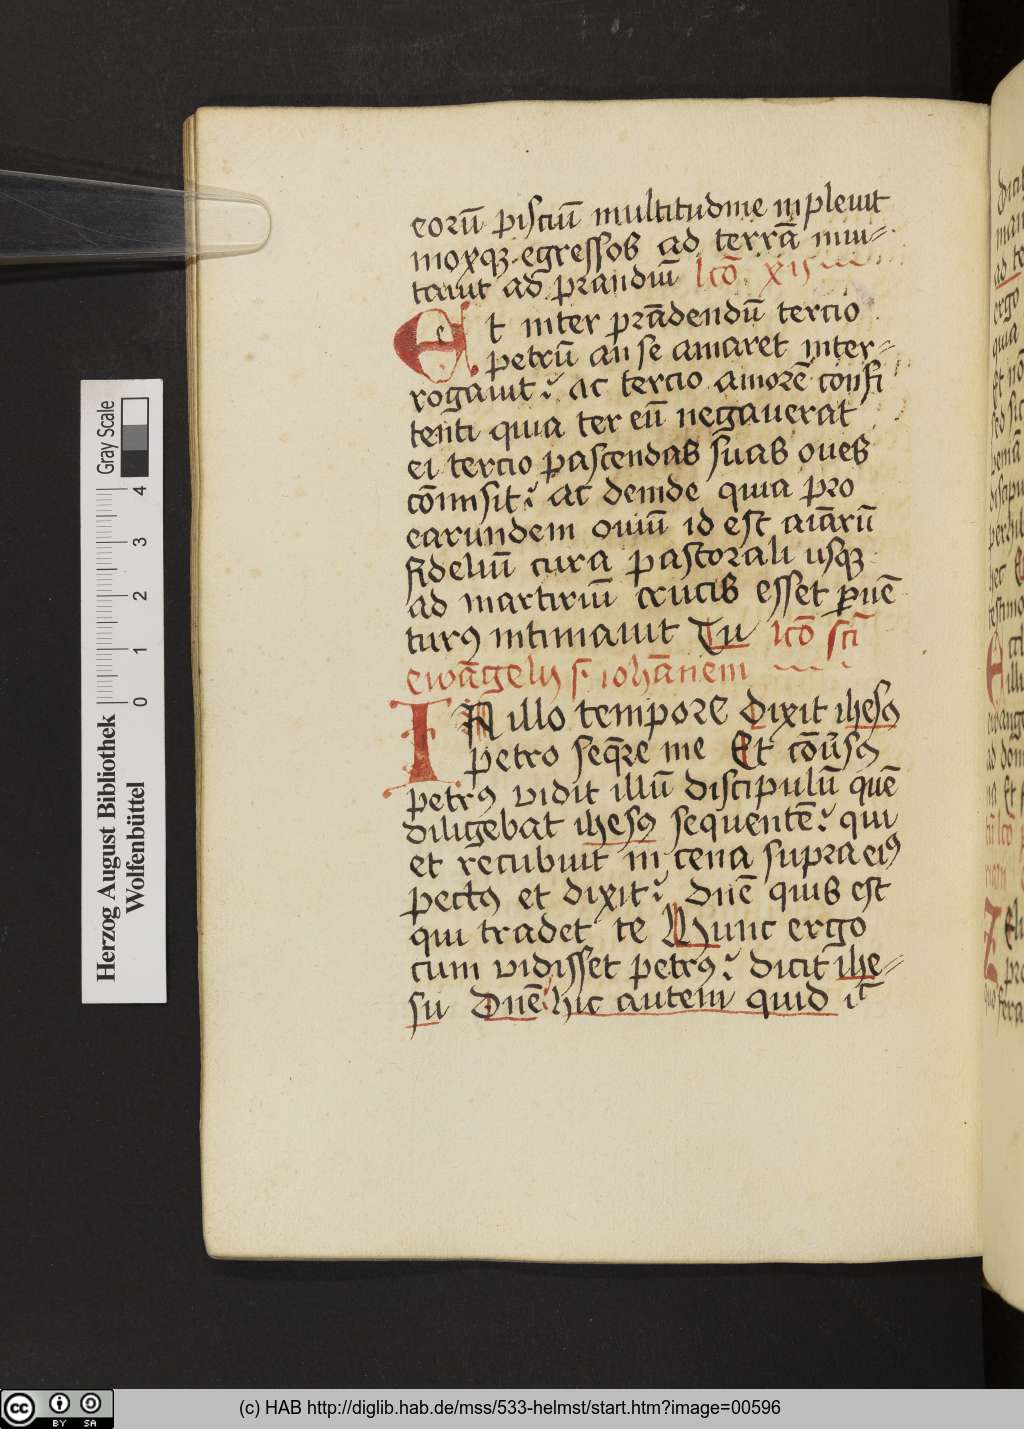 eorū pisciū multitudine inpleuit
moxqꝫ egressos ad terrā inui⸗
tauit ad prandiū lcō xij
Et inter prādendū tercio
petrū an se amaret inter⸗
rogauit ac tercio amorē confi
tēti quia ter eū negauerat
ei tercio pascendas suas oues
cōmisit ac deinde quia pro
earundem ouiū id est aīarū
fideliū cura pastorali usqꝫ
ad martiriū crucis esset ꝑuē
turꝰ intimauit Tu lcō scī
ewāgelij s iohānem
IN illo tempore Dixit ihesꝰ
petro seq̄re me Et cōūsꝰ
petrꝰ vidit illū discipulū quē
diligebat ihesꝰ sequentē qui
et recubuit in cena supra eiꝰ
pectꝰ et dixit Dnē quis est
qui tradet te Hunc ergo
cum vidisset petrꝰ dicit ihe⸗
su Dnē hic autem quid it̄
Herzog August Bibliothek
Wolfenbüttel
0 1 2 3 4
Gray Scale
cc BY SA
(c) HAB http://diglib.hab.de/mss/533-helmst/start.htm?image=00596